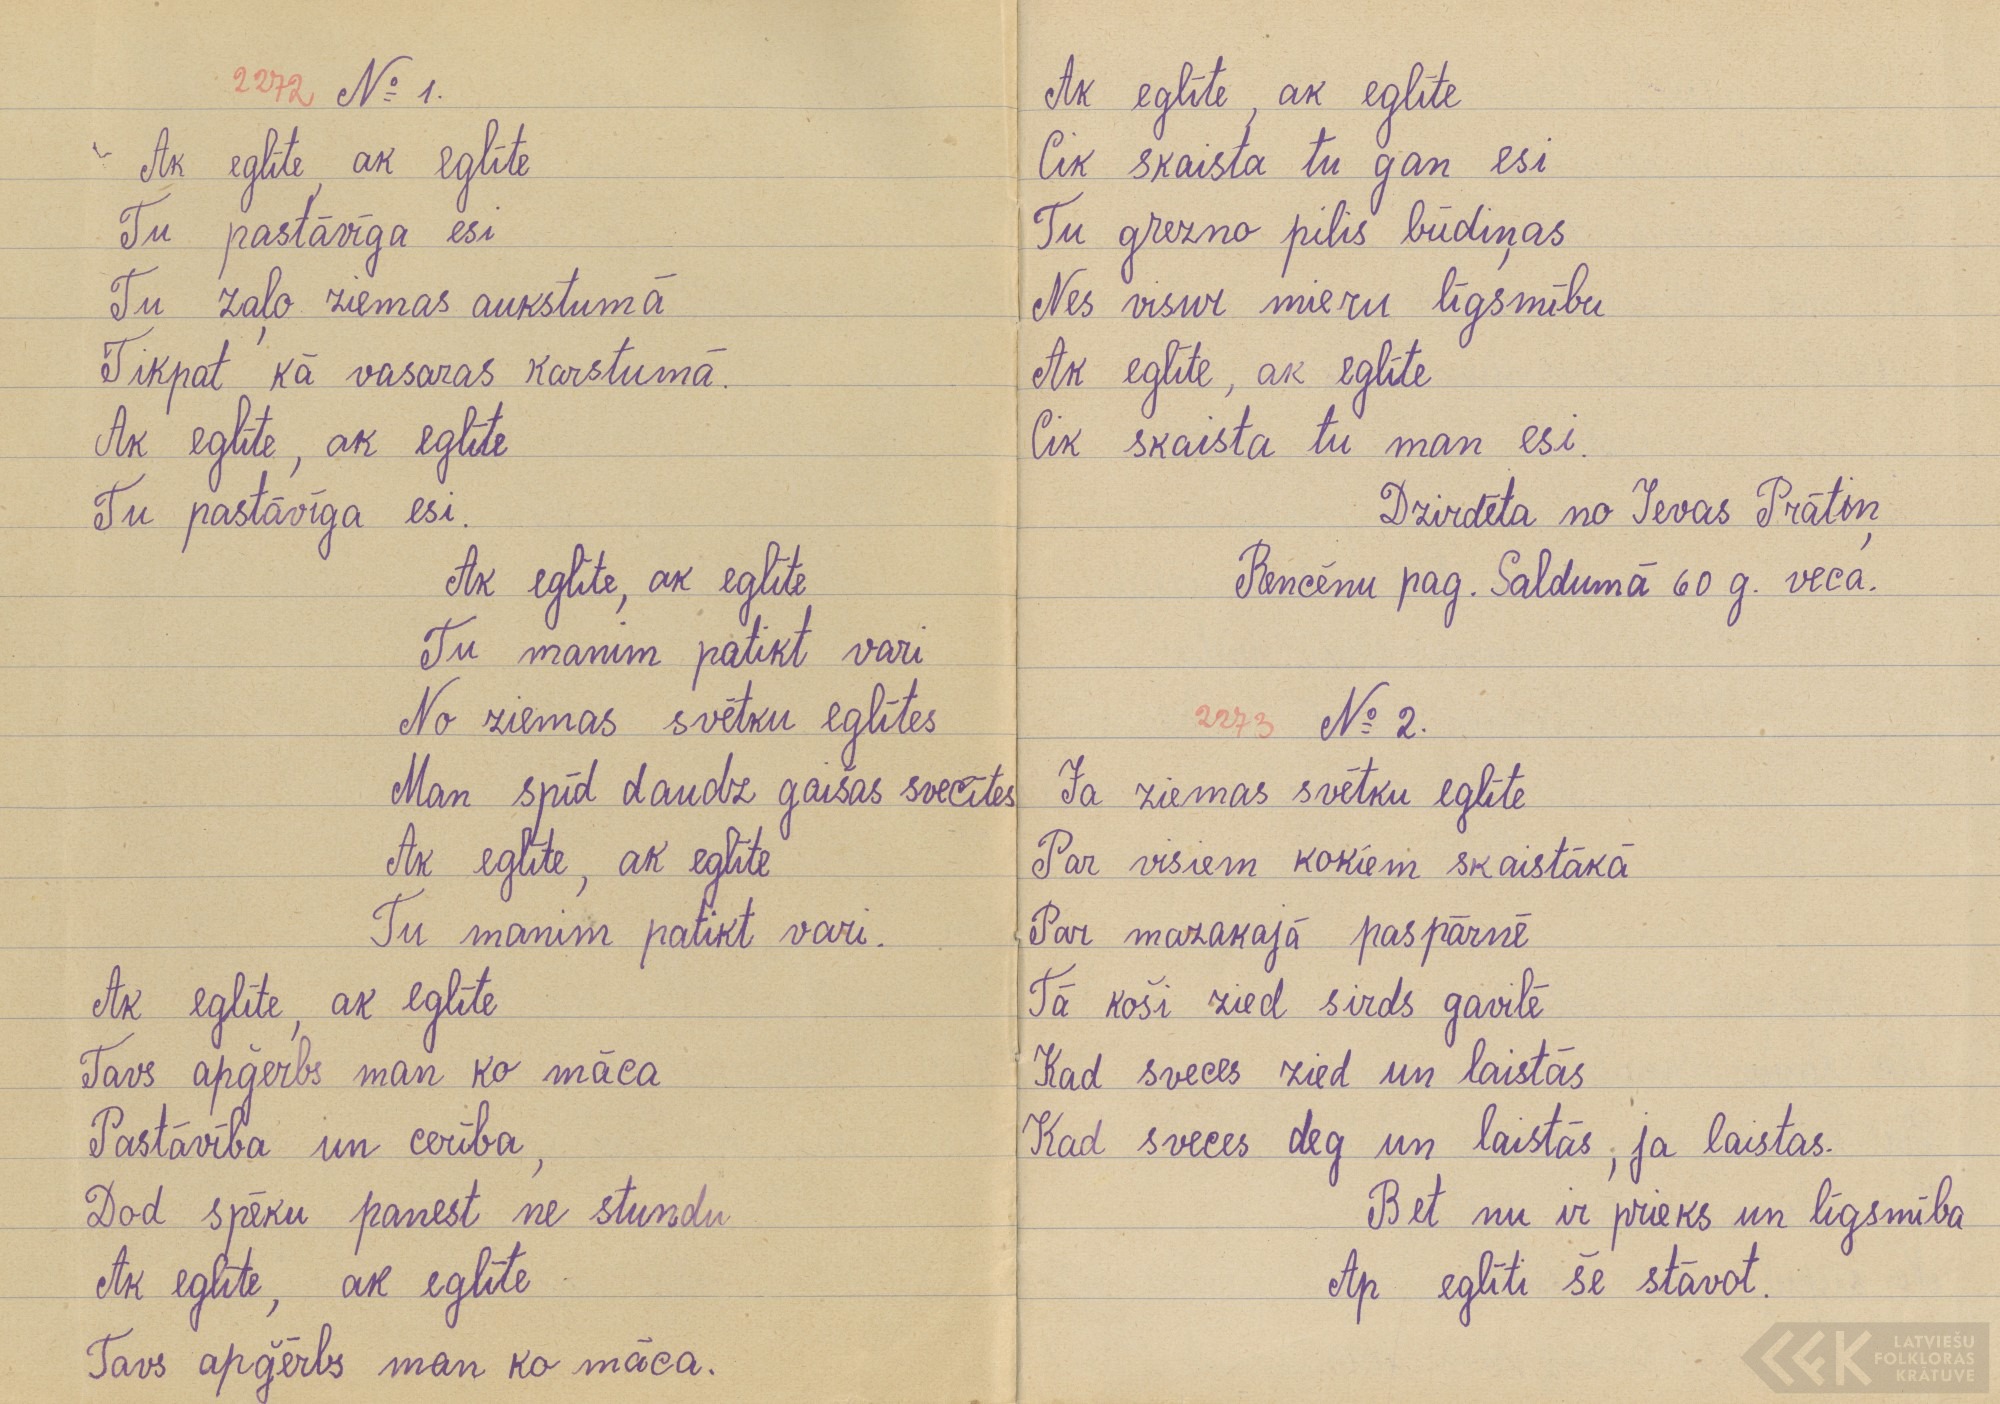 2272 № 1.
Ak eglīte, ak eglīte
Tu pastāvīga esi
Tu zaļo ziemas aukstumā
Tikpat kā vasaras karstumā.
Ak eglīte, ak eglīte
Tu pastāvīga esi.
Ak eglīte, ak eglīte
Tu manim patikt vari
No ziemas svētku eglītes
Man spīd daudz gaišas svecītes
Ak eglīte, ak eglīte
Tu manim patikt vari.
Ak eglīte, ak eglīte
Tavs apģērbs man ko māca
Pastāvība un cerība,
Dod spēku panest ne stundu
Ak eglīte, ak eglīte
Tavs apģērbs man ko māca.
Ak eglīte, ak eglīte
Cik skaista tu gan esi
Tu grezno pilis būdiņas
Nes visur mieru līgsmību
Ak eglīte, ak eglīte
Cik skaista tu man esi.
Dzirdēta no Ievas Prātiņ,
Rencēnu pag. Saldumā 60 g. veca.
2273 № 2.
Ja ziemas svētku eglīte
Par visiem kokiem skaistākā
Par mazakajā paspārnē
Tā koši zied sirds gavilē
Kad sveces zied un laistās
Kad sveces deg un laistās, ja laistas.
Bet nu ir prieks un līgsmība
Ap eglīti še stāvot.
LATVIEŠU
FOLKLORAS
KRĀTUVE